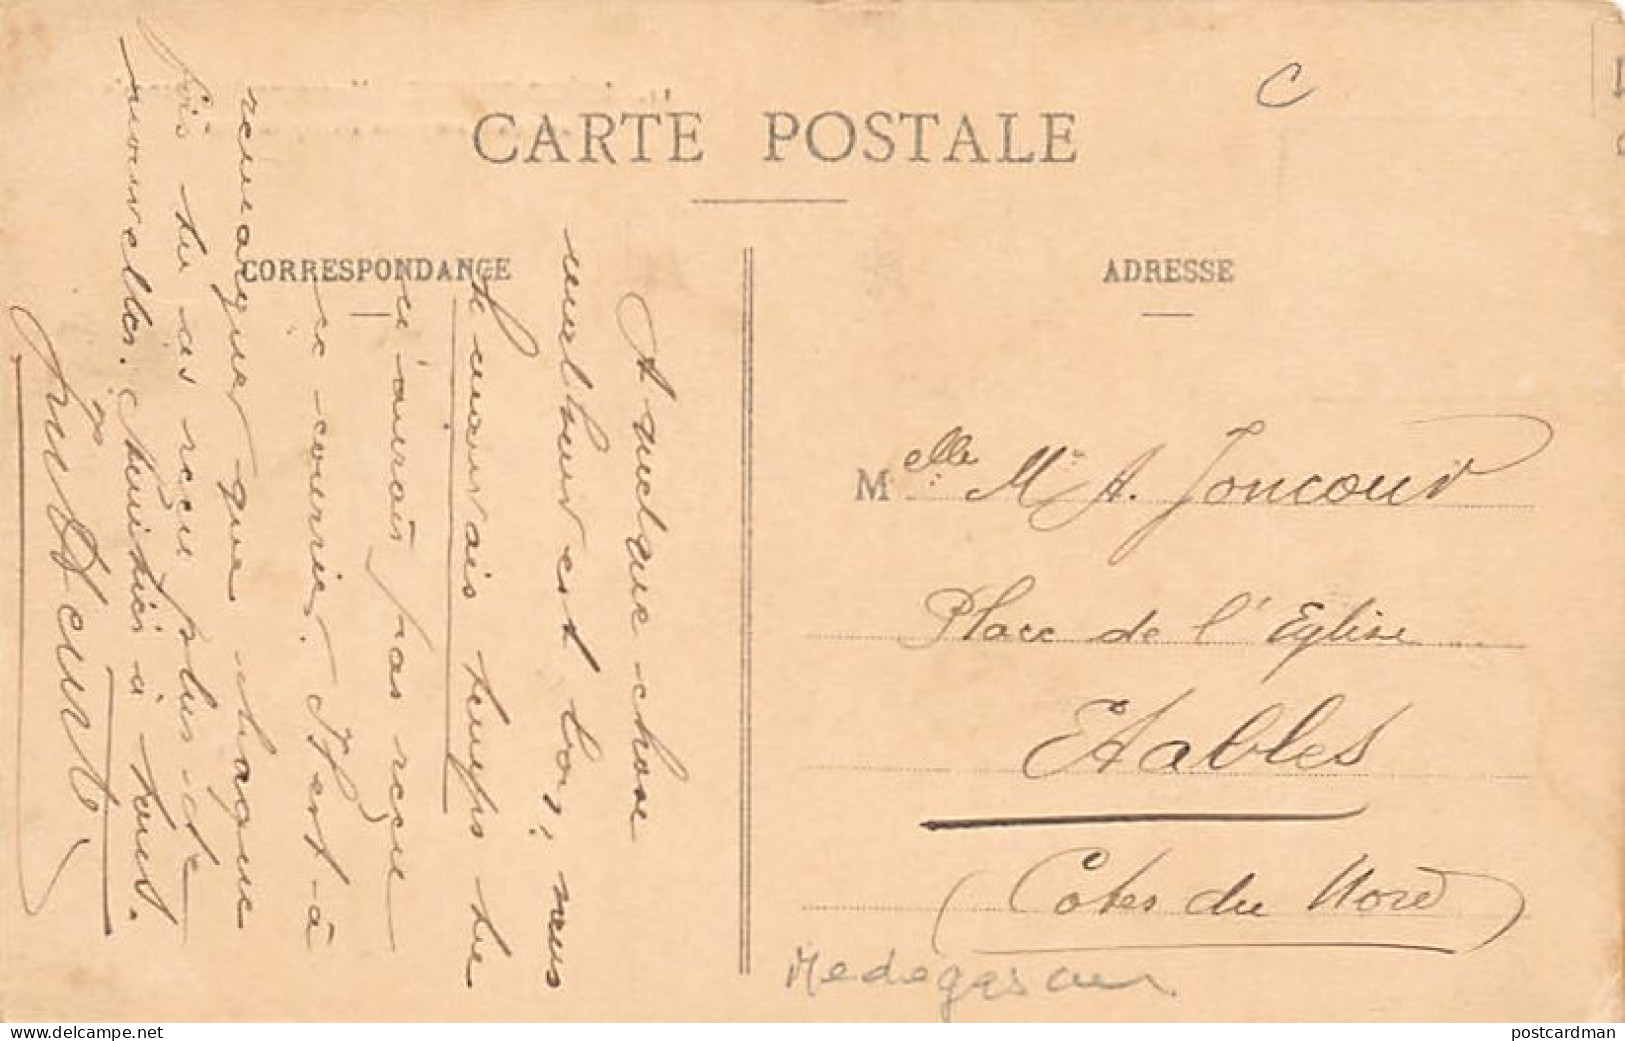 C
CARTE POSTALE
CORRESPONDANCE
ADRESSE
A quelque chose
malheur est bon, nous
le mauvais temps tu
n'aurais pas reçu
ce courrier. C'est à
remarquer que chaque
fois tu as reçu plus de
nouvelles. Amitiés à tous.
Melle M A. Joncour
Place de l'Eglise
Etables
(Côtes du Nord)
Medegascar
www.delcampe.net
postcardman